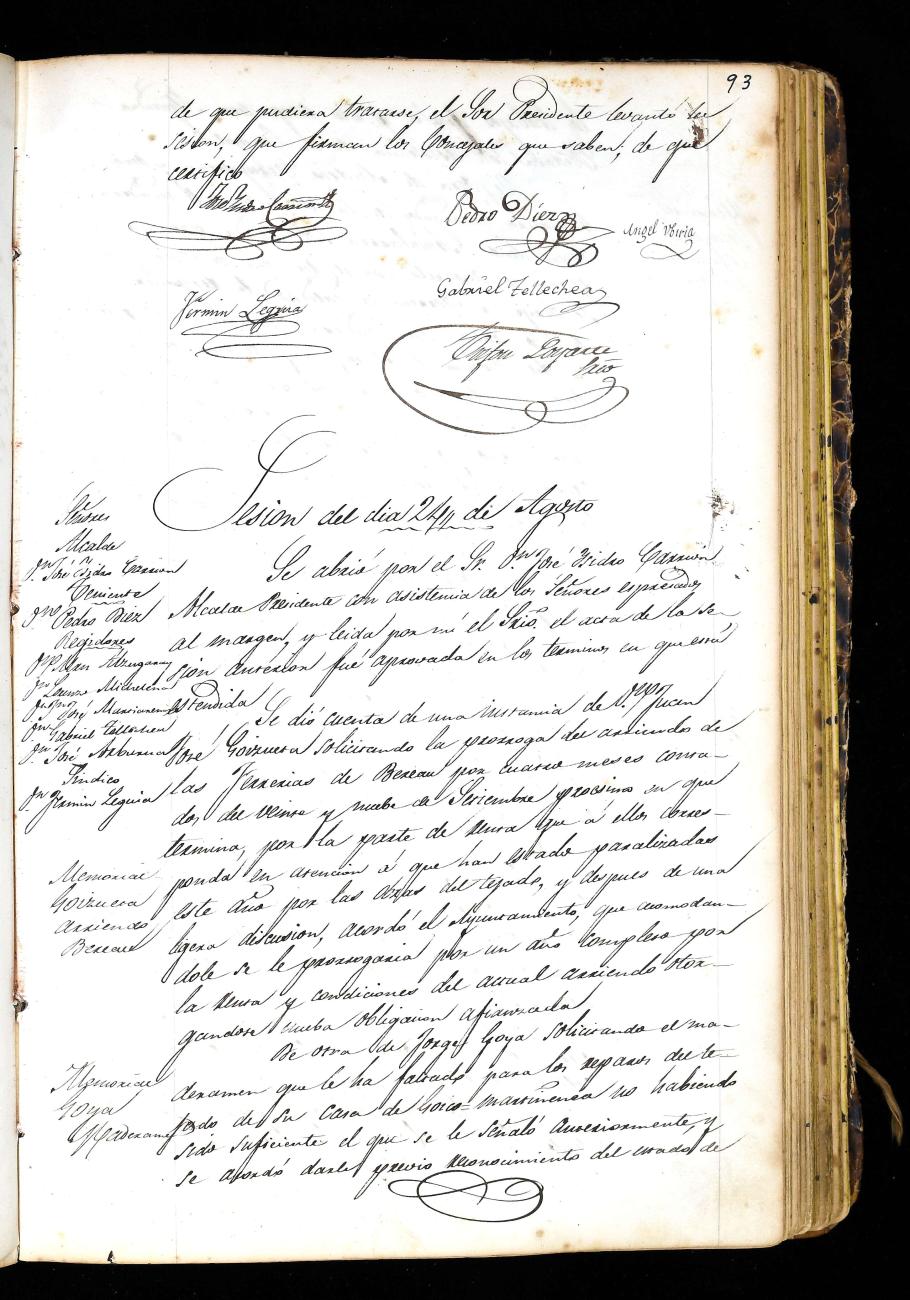 93
de que pudiera tratarse, el Sor Presidente levantó la
sesion, que firman los Concejales que saben; de que
certifico
José Ysidro Carrion
Pedro Diez
Angel Ubiria
Gabriel Tellechea
Fermin Leguia
Srio
Sesion del dia 24 de Agosto
Señores
Alcalde
Dn José Ysidro Carrion
Teniente
Dn Pedro Diez
Regidores
Lorenzo Michelena
José Marisarena
Dn Gabriel Tellechea
Dn José
Sindico
Dn Fermin Leguia
Se abrió por el Sr. Dn José Ysidro Carrion
Alcalde Presidente con asistencia de los Señores espresados
al margen, y leida por mi el Srio. el acta de la se-
sion anterior fué aprovada en los terminos en que está
estendida
Memorial
Goizueta
arriendo
Bereau
Se dió cuenta de una instancia de Dn Juan
José Goizueta solicitando la prorroga del arriendo de
las Ferrerias de Bereau por cuatro meses conta-
dos del veinte y nuebe de Setiembre procsimo en que
termina, por la parte de renta que á ellos corres-
ponda en atencion á que han estado paralizadas
este año por las obras del tejado, y despues de una
ligera discusion, acordó el Ayuntamiento, que acomodan-
dole se le prorrogaria por un año completo por
la renta y condiciones del actual arriendo otor-
gandose nueba obligacion afianzada
Memorial
Goya
Maderamen
De otra de Jorge Goya solicitando el ma-
deramen que le ha faltado para los reparos del te-
jado de su casa de Goico=martinenea no habiendo
sido suficiente el que se le señaló anteriormente, y
se acordó darle previo reconocimiento del estado de